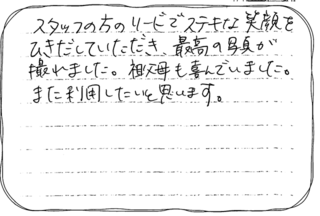 スタッフの方のリードでステキな笑顔を
ひきだしていただき、最高の写真が
撮れました。祖父母も喜んでいました。
また利用したいと思います。